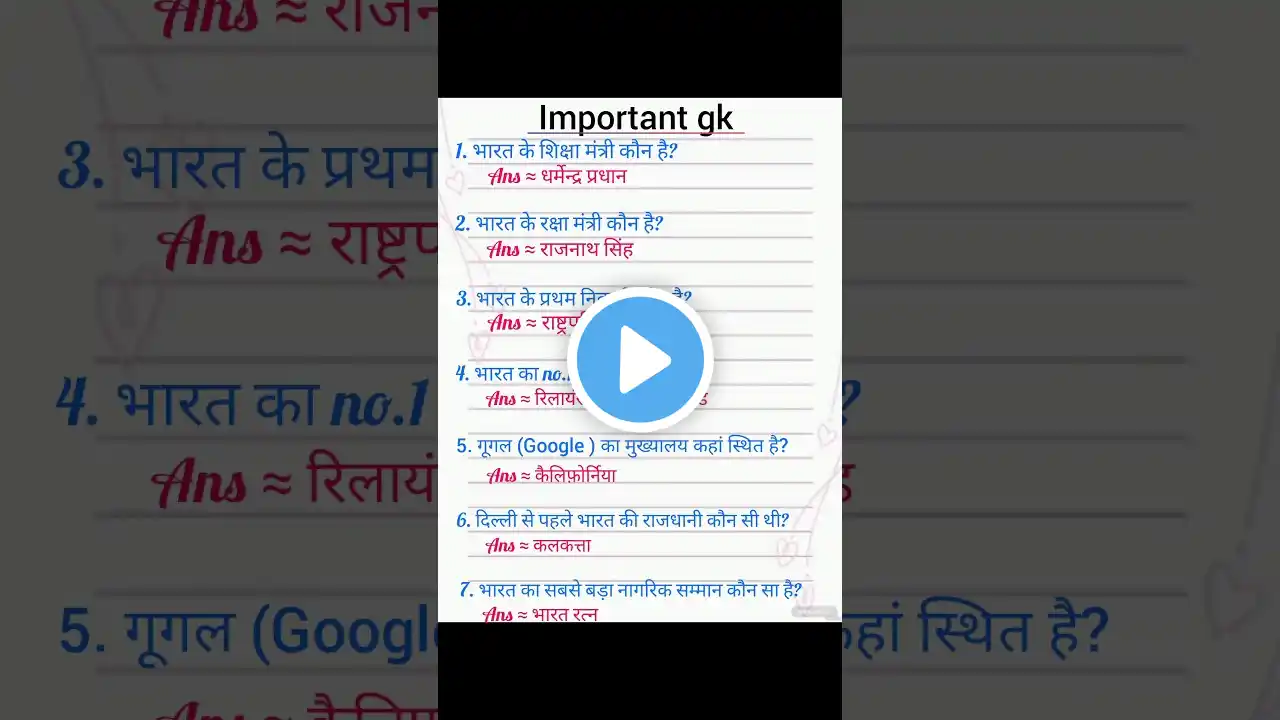 Important gk
1. भारत के शिक्षा मंत्री कौन है?
Ans ≈ धर्मेन्द्र प्रधान
2. भारत के रक्षा मंत्री कौन है?
Ans ≈ राजनाथ सिंह
3. भारत के प्रथम है?
Ans ≈
4. भारत का no.1
Ans ≈
5. गूगल (Google ) का मुख्यालय कहां स्थित है?
Ans ≈ कैलिफ़ोर्निया
6. दिल्ली से पहले भारत की राजधानी कौन सी थी?
Ans ≈ कलकत्ता
7. भारत का सबसे बड़ा नागरिक सम्मान कौन सा है?
Ans ≈ भारत रत्न